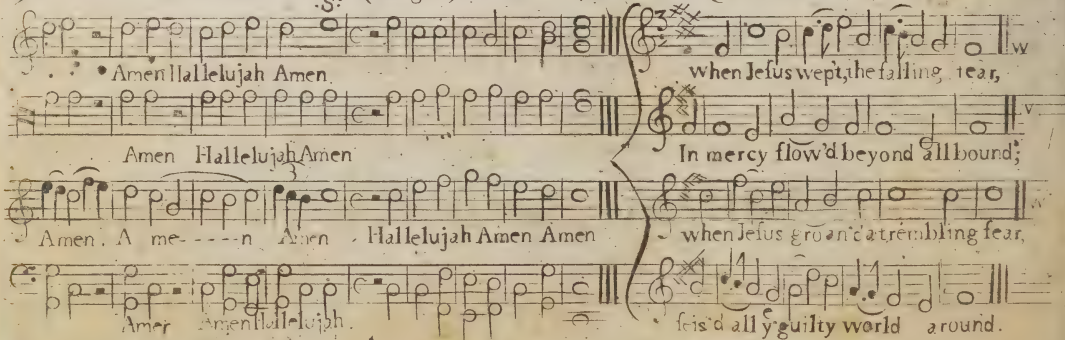 :S:
Amen Hallelujah Amen
Amen Hallelujah Amen
Amen. A me-----n Amen. Hallelujah Amen Amen
3
Amen Amen Hallelujah.
3
when Jeſus wept, the falling tear,
In mercy flow'd beyond all bound;
when Jeſus groan'd a trembling fear,
ſeis'd all yͤ guilty world around.